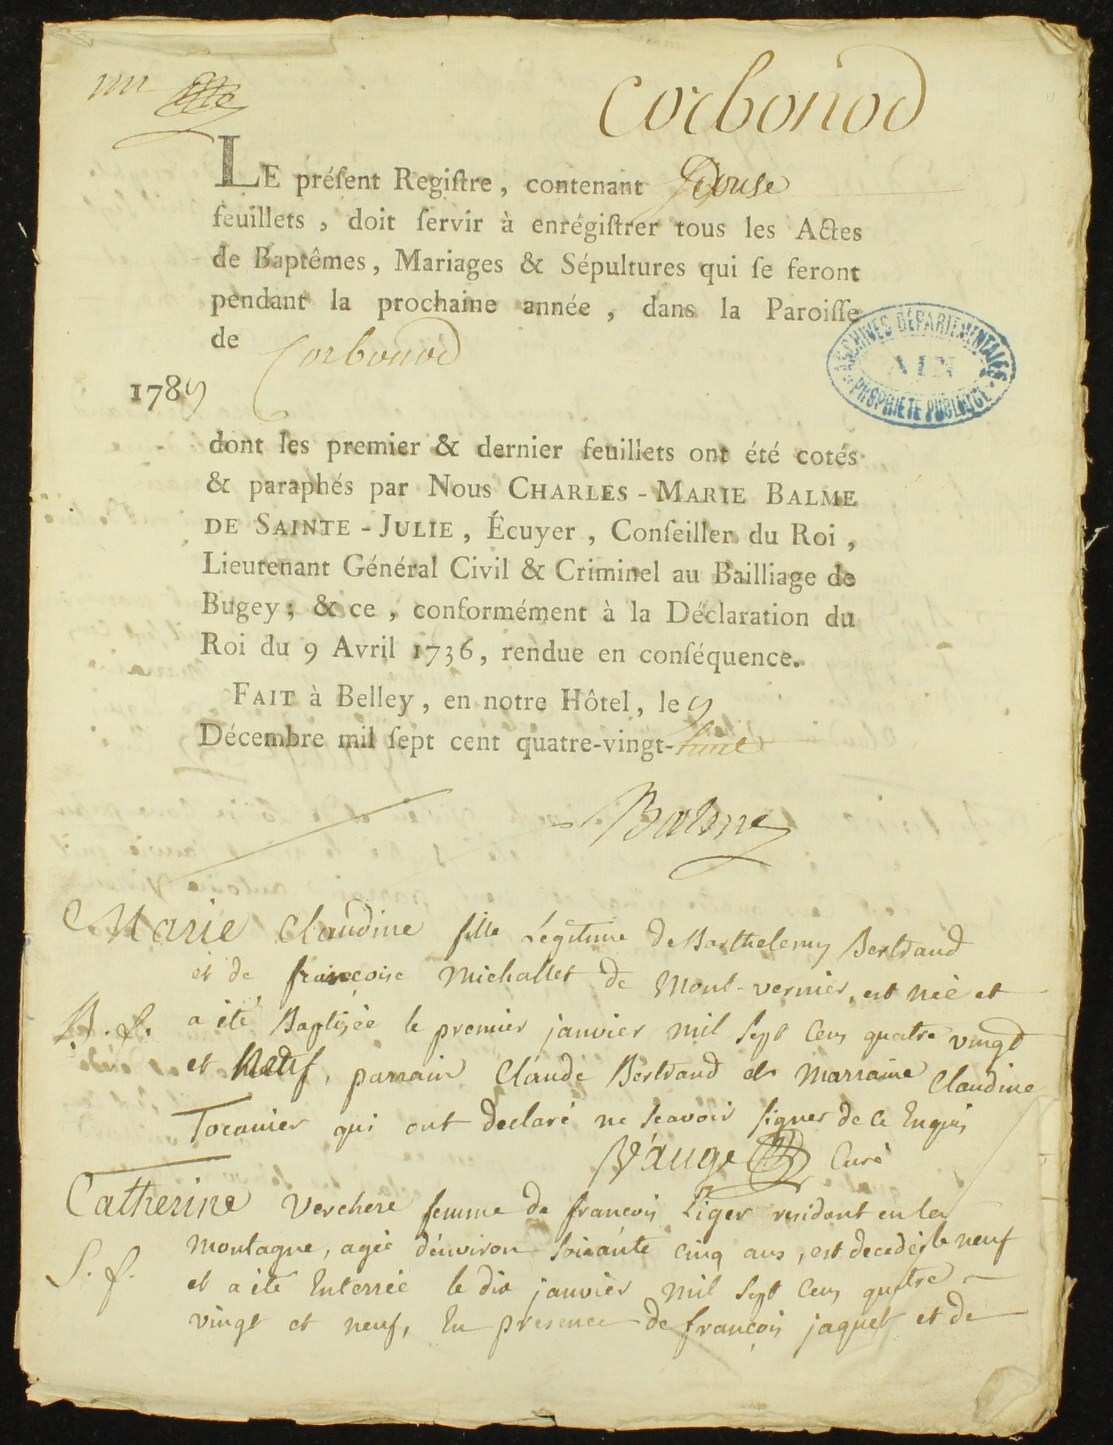 Corbonod
LE préſent Regiſtre, contenant Douse
feuillets, doit ſervir à enrégiſtrer tous les Actes
de Baptêmes, Mariages & Sépultures qui ſe feront
pendant la prochaine année, dans la Paroiſſe
de Corbonod
ARCHIVES DÉPARTEMENTALES
AIN
PROPRIÉTÉ PUBLIQUE
1789
dont les premier & dernier feuillets ont été cotés
& paraphés par Nous CHARLES-MARIE BALME
DE SAINTE-JULIE, Écuyer, Conſeiller du Roi,
Lieutenant Général Civil & Criminel au Bailliage de
Bugey; & ce, conformément à la Déclaration du
Roi du 9 Avril 1736, rendue en conſéquence.
FAIT à Belley, en notre Hôtel, le 9
Décembre mil ſept cent quatre-vingt-huit
Balme
Marie Claudine fille Légitime de Barthelemy Bertrand
et de françoise Michallet de Mont-vernier, est née et
B. f. a été Baptisée le premier janvier mil Sept Cens quatre vingt
et Neuf, parrain Claude Bertrand et Marraine Claudine
Tocanier qui ont declaré ne Scavoir signer de ce Enquis
Curé
Catherine Verchere femme de françois Liger residant en la
montagne, agée d'environ Soixante cinq ans, est decedée le neuf
S. f. et a été Enterrée le dix janvier mil Sept Cens quatre
vingt et neuf, En presence de françois jaquet et de